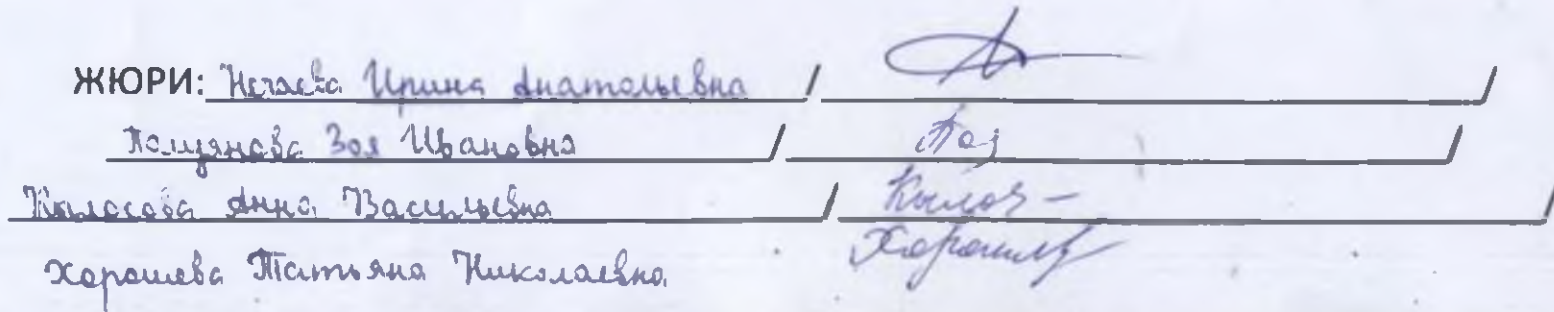 ЖЮРИ: Нечаева Ирина Анатольевна / /
Зоя Ивановна / Поз /
Кылосова Анна Васильевна / Кылос- /
Хорошева Татьяна Николаевна